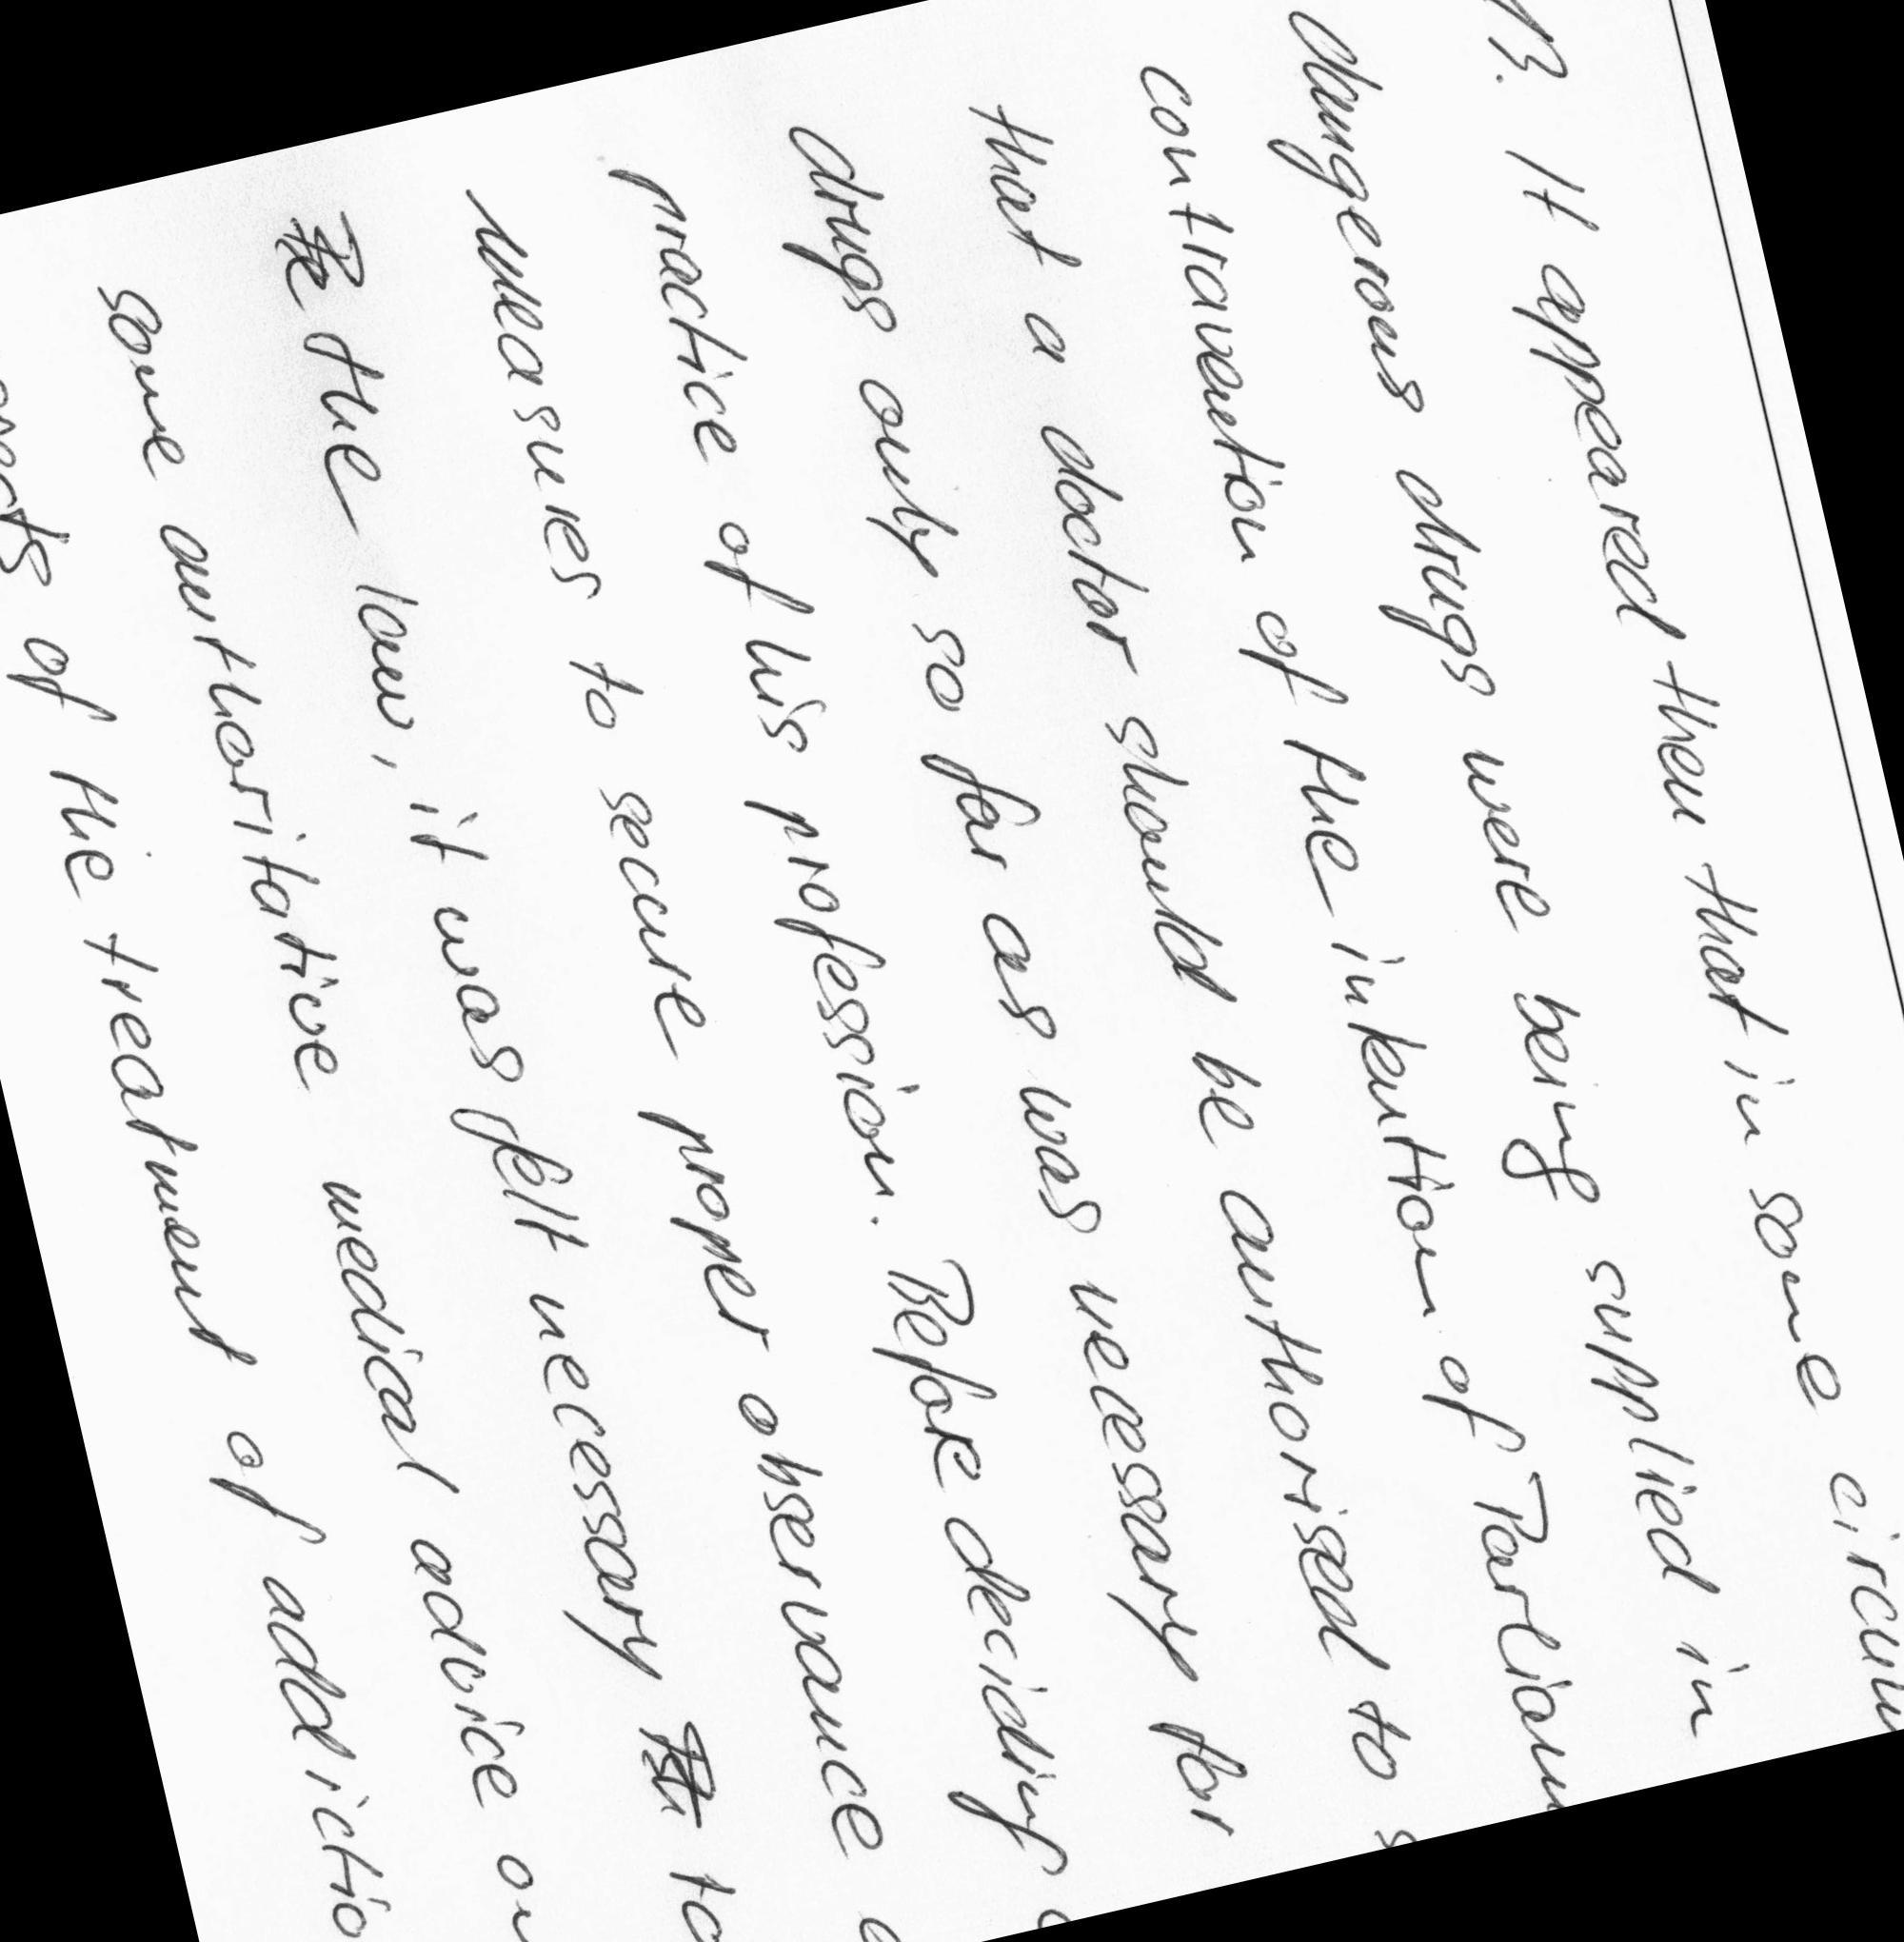 13. It appeared then that in some
dangerous drugs were being supplied in
contravention of the intention of
that a doctor should be authorised to
drugs only so far as was necessary for
practice of his profession. Before deciding
measures to secure proper observance
the law, it was felt necessary to
some authoritative medical advice on
of the treatment of